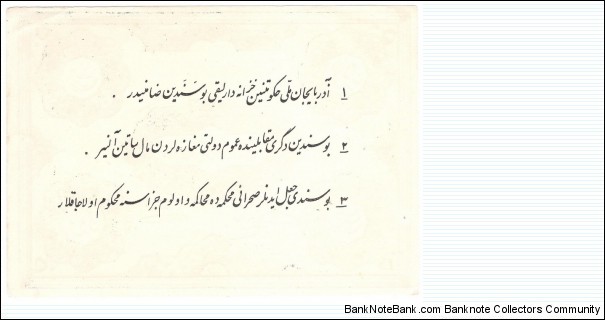 ۱ آذربایجان ملی حکومتنین خزانه داریقی بو سندین ضامنیدر .
۲ بو سندین دگری مقابلینده عموم دولتی مغازه لردن مال ساتین آلنیر .
۳ بو سندی جعل ایدنلر صحرائی محکمه ده محاکمه و اولوم جزاسنه محکوم اولاجاقلار
BankNoteBank.com - Banknote Collectors Community